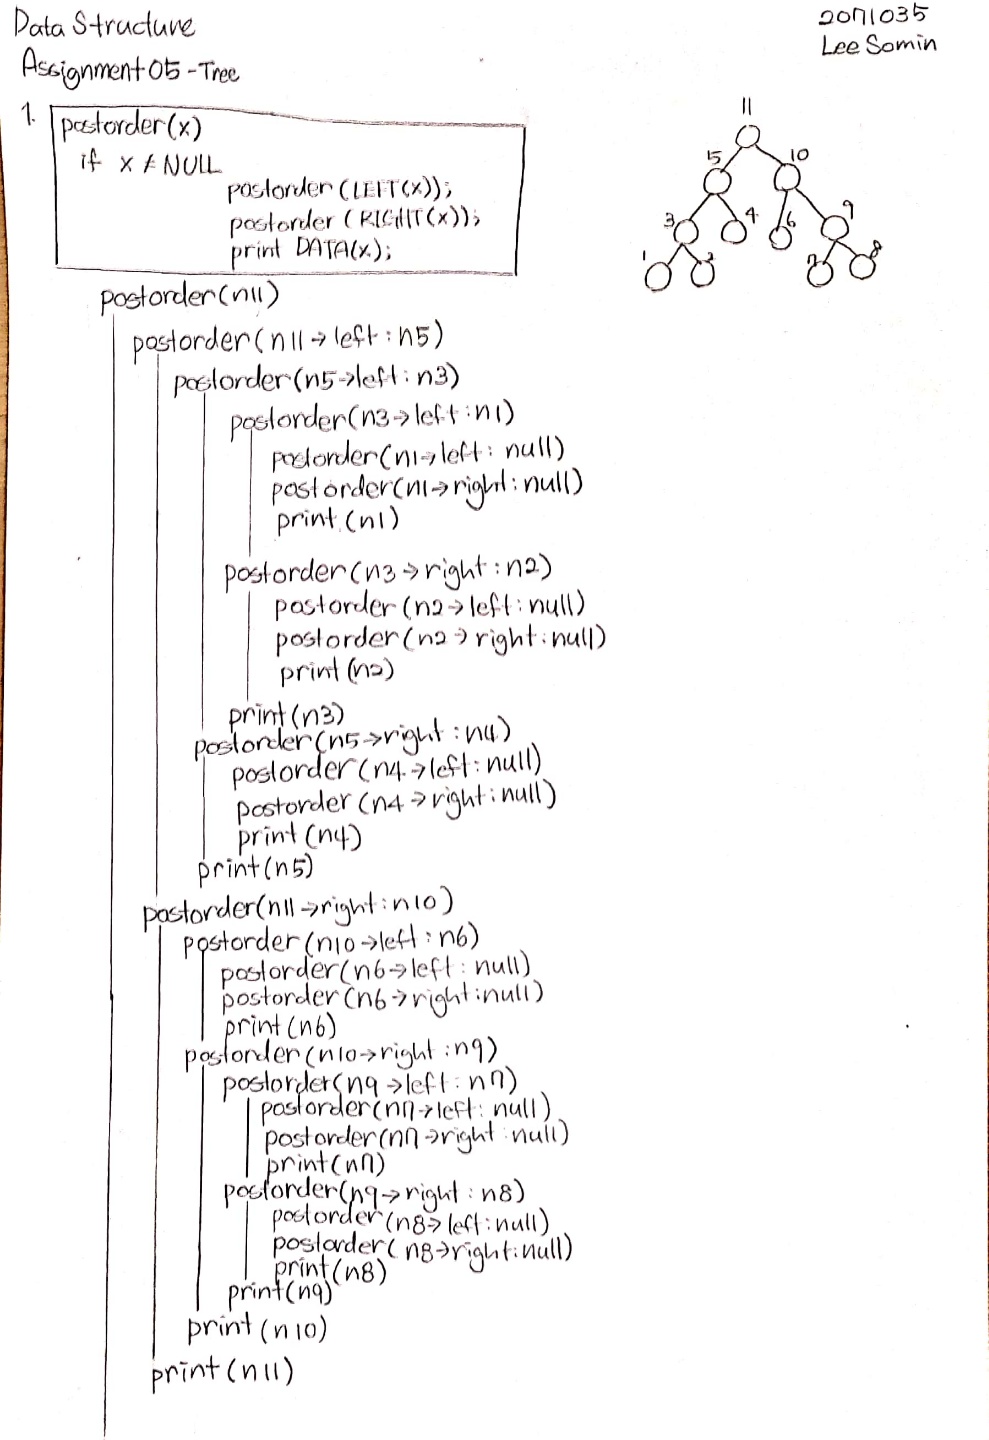 Data Structure
Assignment 05 - Tree
2071035
Lee Somin
1.
postorder(x)
if x ≠ NULL
postorder (LEFT(x));
postorder (RIGHT(x));
print DATA(x);
11
5 10
3 4 6 9
1 2 7 8
postorder(n11)
postorder(n11→left : n5)
postorder(n5→left : n3)
postorder(n3→left : n1)
postorder(n1→left : null)
postorder(n1→right : null)
print (n1)
postorder(n3→right : n2)
postorder (n2→left : null)
postorder (n2→right : null)
print (n2)
print (n3)
postorder(n5→right : n4)
postorder (n4→left : null)
postorder (n4→right : null)
print (n4)
print (n5)
postorder(n11→right : n10)
postorder (n10→left : n6)
postorder(n6→left : null)
postorder (n6→right : null)
print (n6)
postorder (n10→right : n9)
postorder(n9→left : n7)
postorder (n7→left : null)
postorder (n7→right : null)
print (n7)
postorder(n9→right : n8)
postorder (n8→left : null)
postorder( n8→right : null)
print (n8)
print (n9)
print (n10)
print (n11)